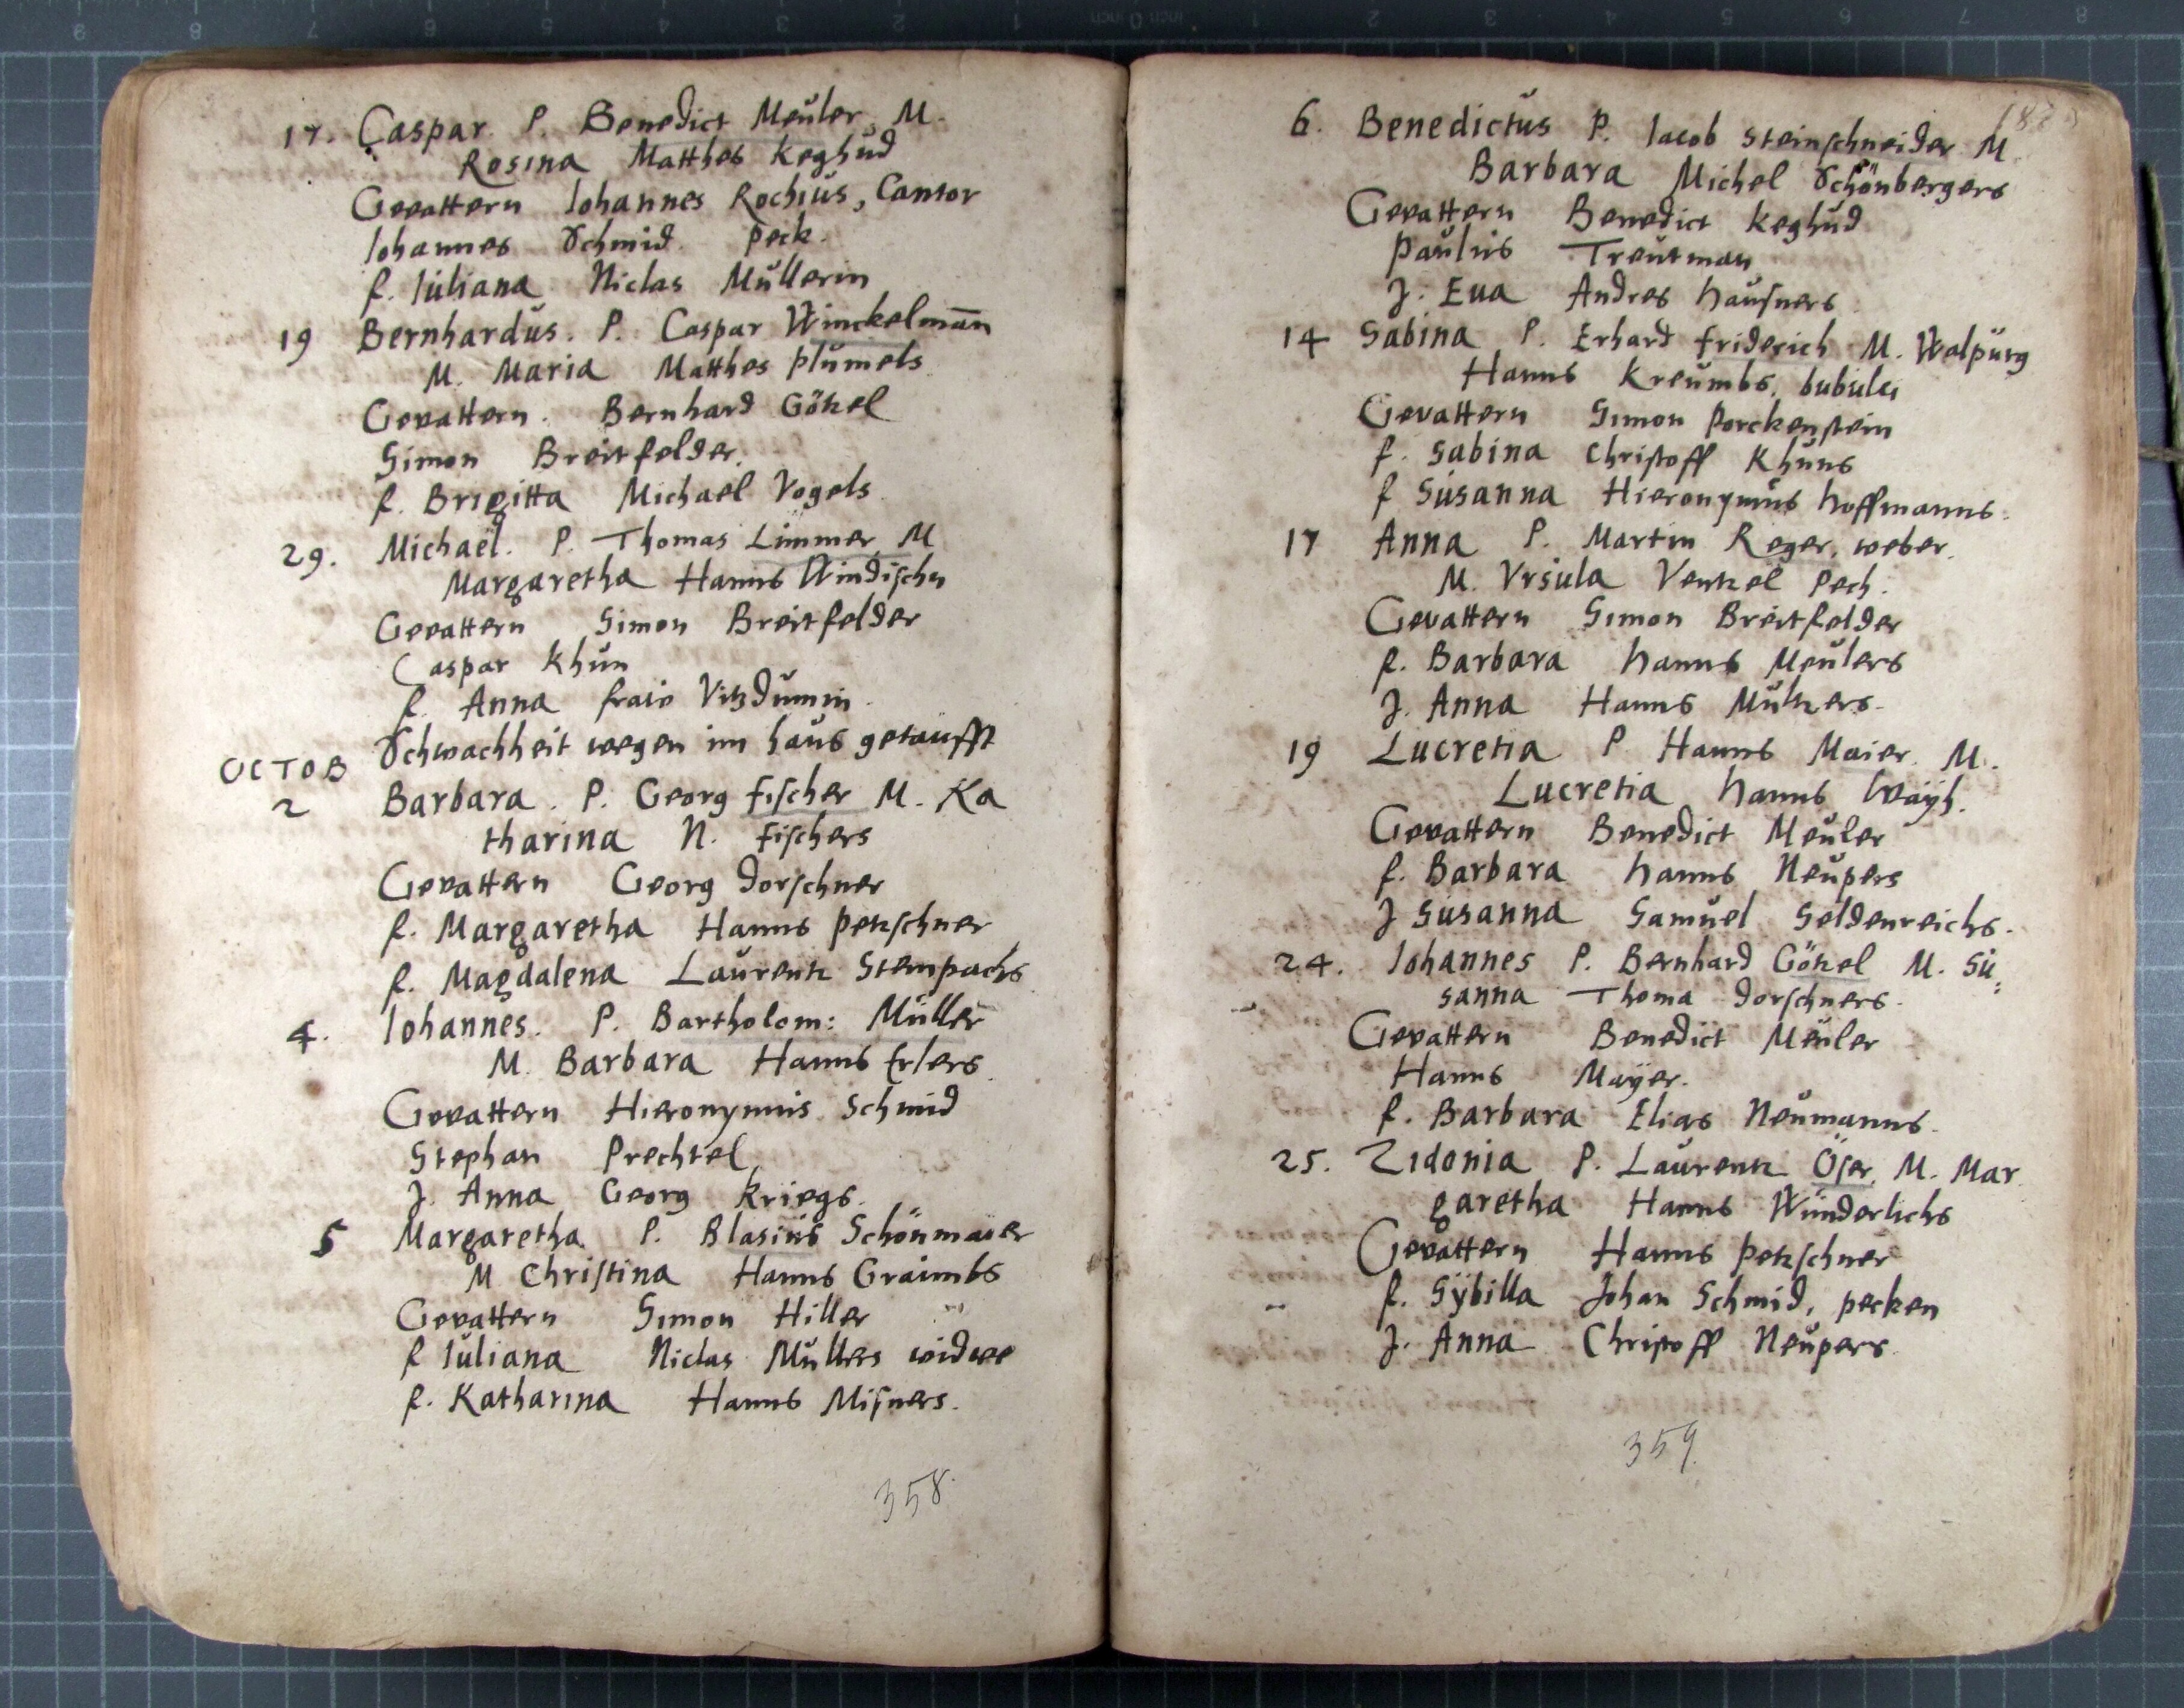 17. Caspar. P. Benedict Meuler, M.
Rosina Matthes Keghud
Gevattern Iohannes Rochius, Cantor
Iohannes Schmid. Peck.
f. Iuliana Niclas Mullerin
19 Bernhardus. P. Caspar Winckelmān
M. Maria Matthes Plumels
Gevattern. Bernhard Götzel
Simon Breitfelder.
f. Brigitta Michael Vogels
29. Michaël. P. Thomas Limmer, M
Margaretha Hanns Windischn
Gevattern Simon Breitfelder
Caspar Khun
f. Anna fraw Vitzdumin.
Schwachheit wegen im haus getaufft
OCTOB
2 Barbara. P. Georg Fischer M. Ka
tharina N. Fischers
Gevattern Georg Dorschner
f. Margaretha Hanns Petzschner
f. Magdalena Laurentz Steinpachs
4. Iohannes. P. Bartholom: Müller
M. Barbara Hanns Erlers
Gevattern Hieronymus Schmid
Stephan Prechtel
J. Anna Georg Kriegs.
5 Margaretha P. Blasius Schönmaier
M Christina Hanns Graimbs
Gevattern Simon Hiller
f Iuliana Niclas Mullers widwe
f. Katharina Hanns Misners.
358.
6. Benedictus P. Iacob Steinschneider M.
Barbara Michel Schönbergers
Gevattern Benedict Keghud
Paulus Treutman
J. Eua Andres Hausners
14 Sabina P. Erhard Friderich M. Walpurg
Hanns Kreumbs, bubulci
Gevattern Simon Porckenstein
f. Sabina Christoff Khuns
f Susanna Hieronymus Hoffmanns.
17 Anna P. Martin Reger, weber.
M. Vrsula Ventzel Pech.
Gevattern Simon Breitfelder
f. Barbara Hanns Meulers
J. Anna Hanns Multzers.
19 Lucretia P Hanns Maier. M.
Lucretia Hanns Waÿh.
Gevattern Benedict Meuler
f. Barbara Hanns Neupers
J Susanna Samuel Seldenreichs.
24. Iohannes P. Bernhard Götzel M. Su:
sanna Thoma Dorschners.
Gevattern Benedict Meuler
Hanns Maÿer.
f. Barbara Elias Neumanns.
25. Zidonia P. Laurentz Öser, M. Mar
garetha Hanns Wunderlichs
Gevattern Hanns Petzschner
f. Sÿbilla Johan Schmid, pecken
J. Anna Christoff Neupers.
359.